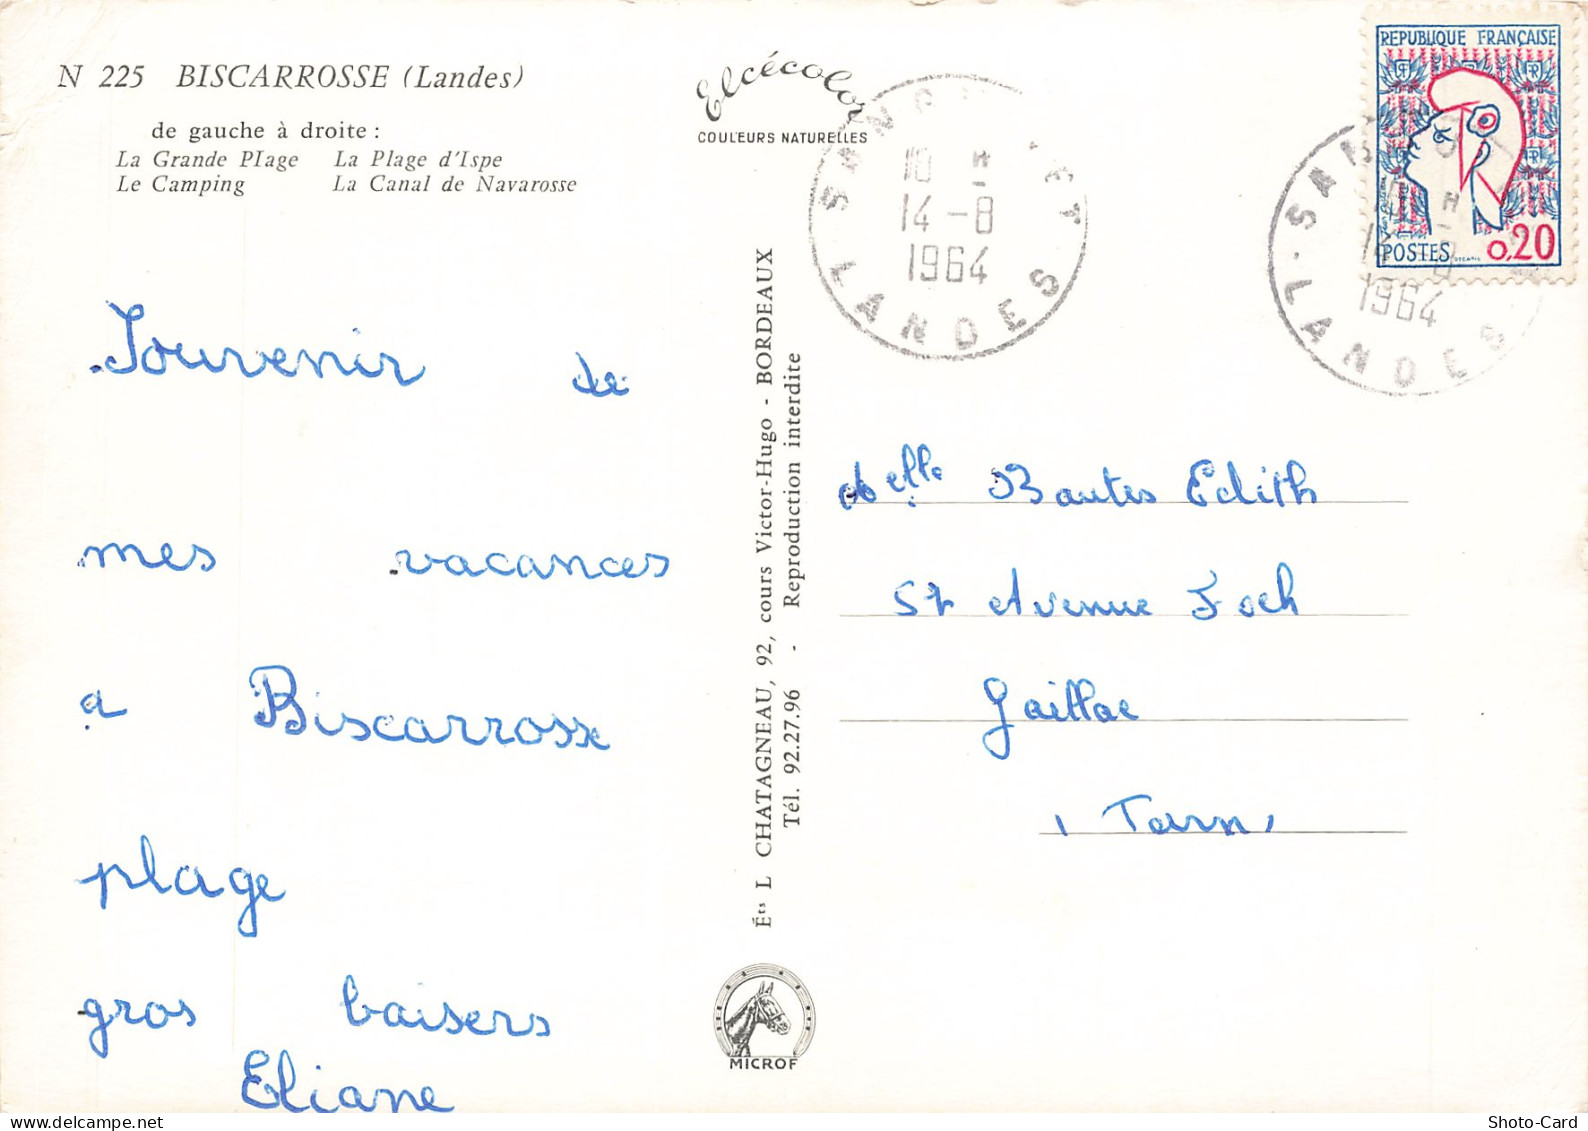 N 225 BISCARROSSE (Landes)
de gauche à droite :
La Grande PIage La Plage d'Ispe
Le Camping La Canal de Navarosse
Elcécolor
COULEURS NATURELLES
10 H
14-8
1964
LANDES
REPUBLIQUE FRANÇAISE
POSTES 0,20
1964
LANDES
Souvenir de
mes vacances
a Biscarrosse
plage
gros baisers
Eliane
Éts L CHATAGNEAU, 92, cours Victor-Hugo - BORDEAUX
Tél. 92.27.96 - Reproduction interdite
MICROF
Melle Bautes Edith
Avenue Foch
Gaillac
Tarn
Shoto-Card